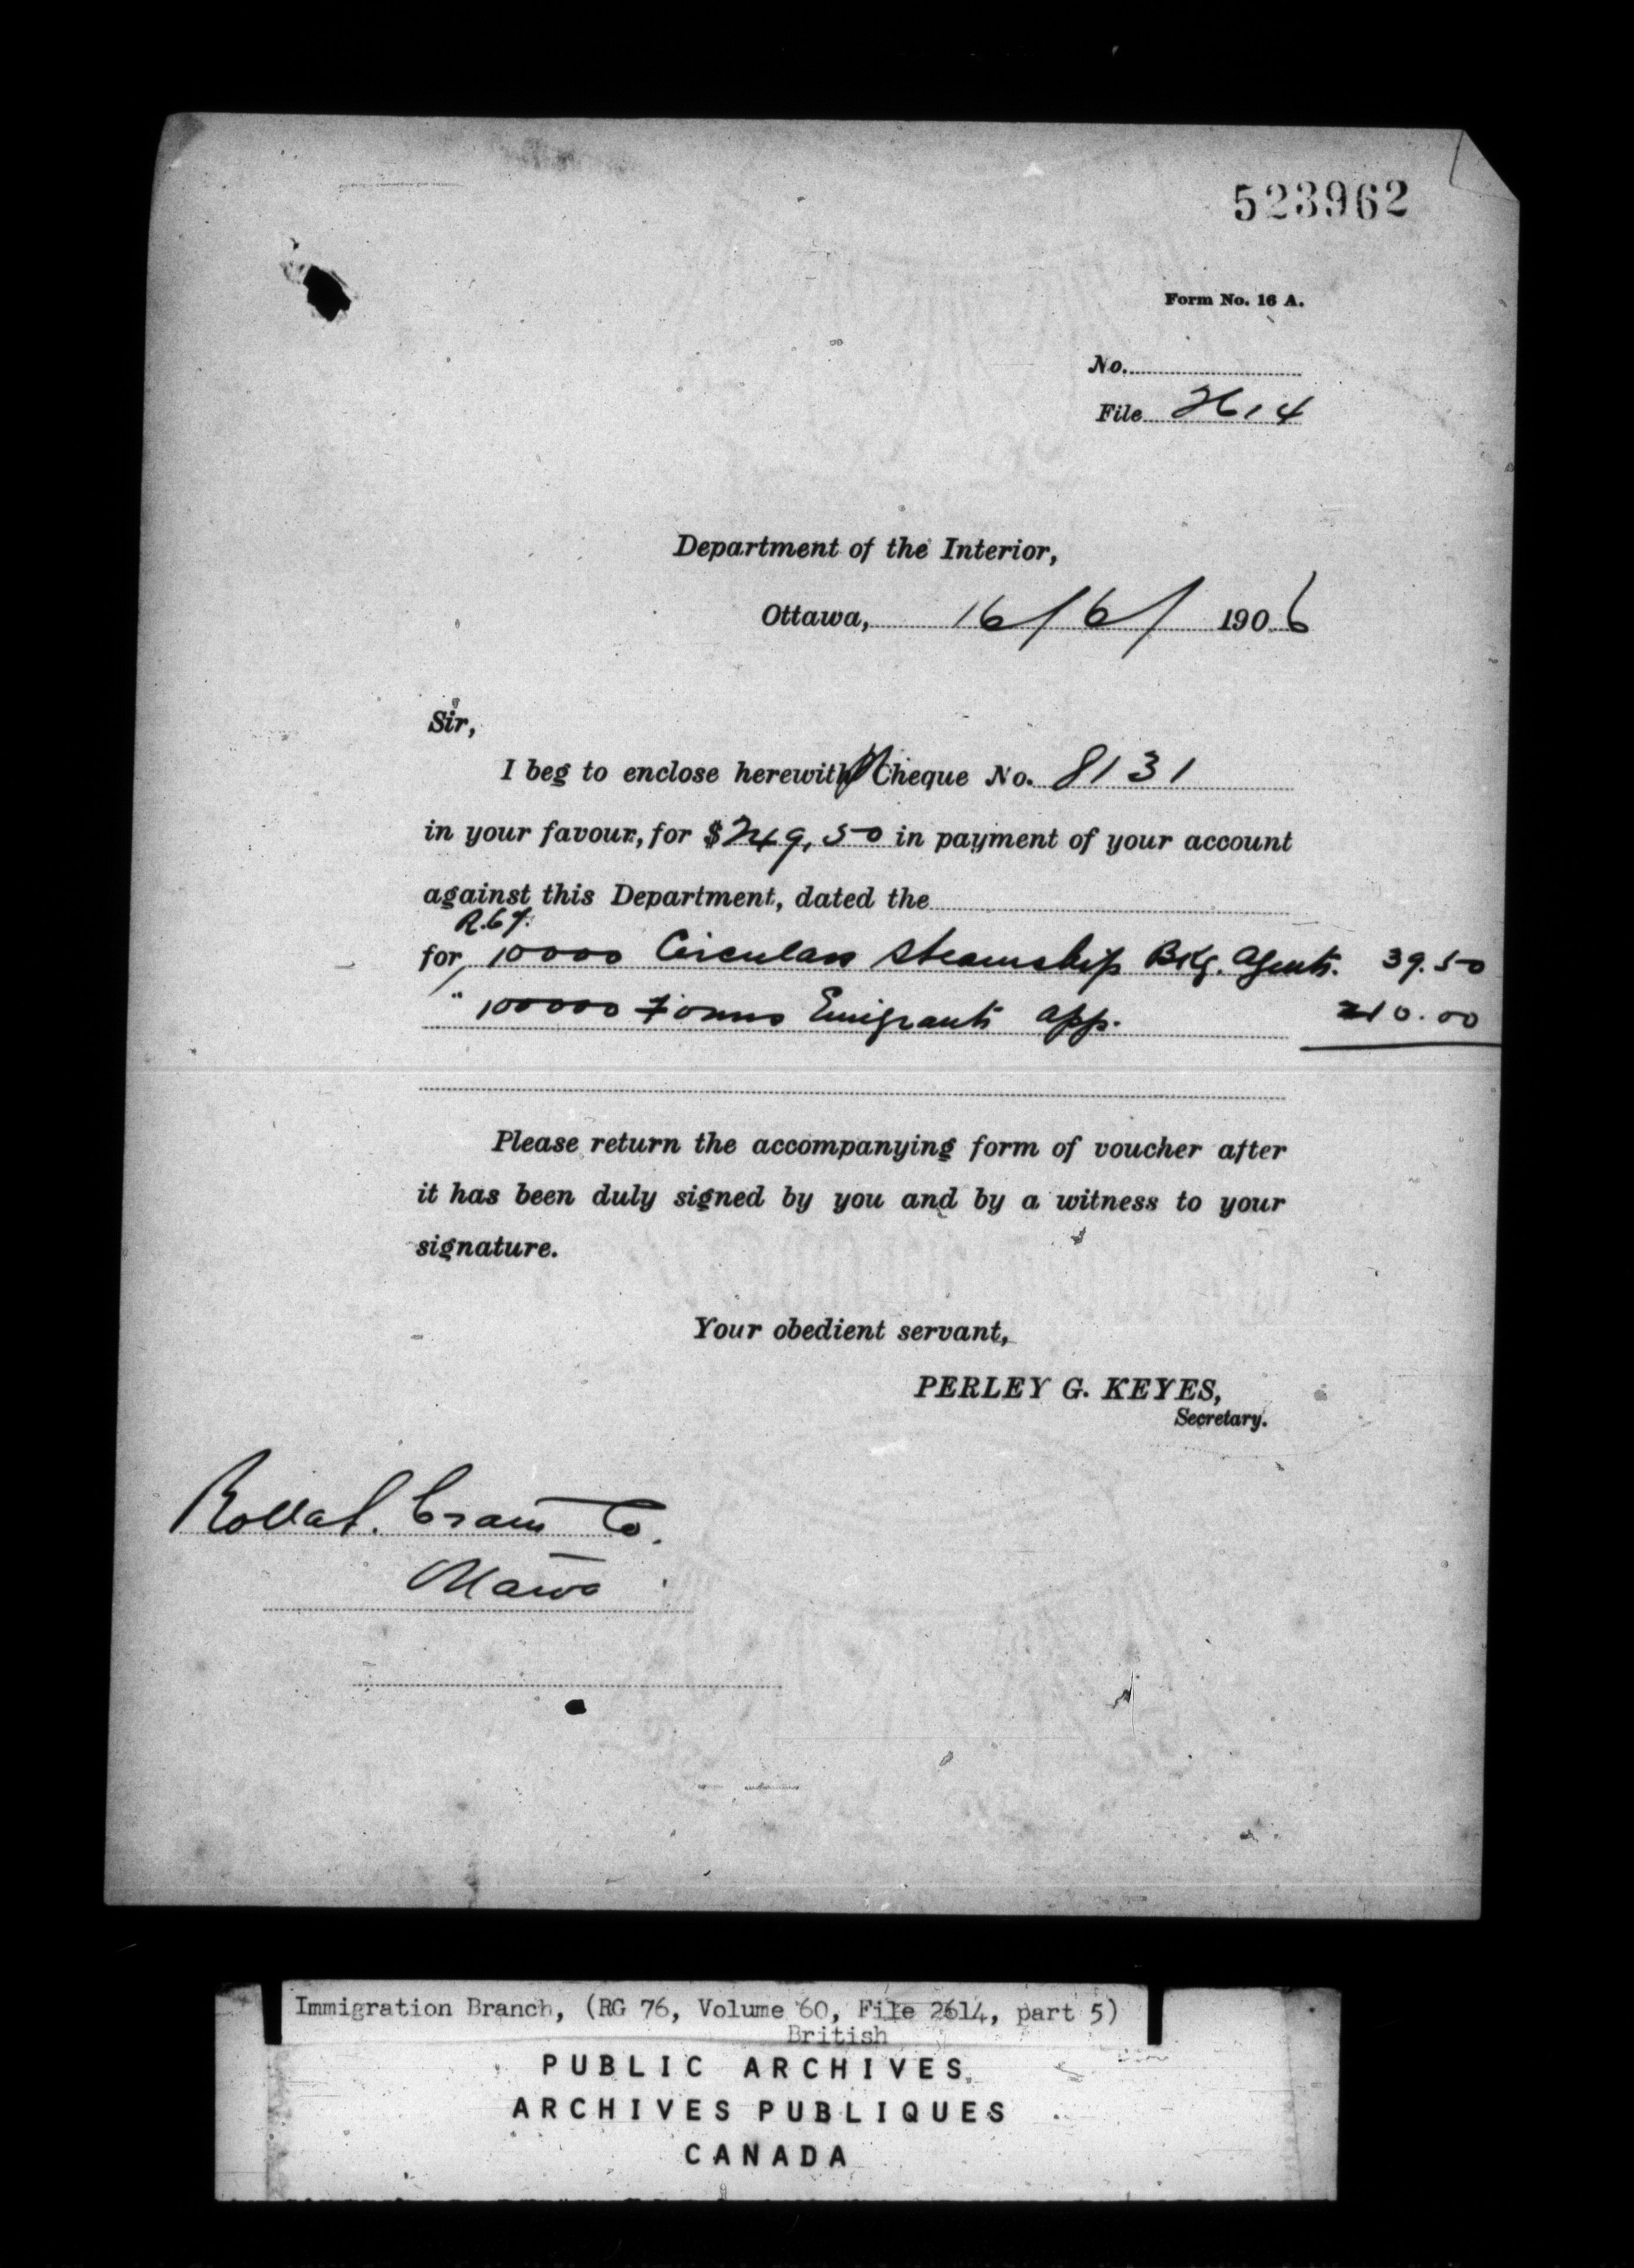 523962
Form No. 16 A.
No.
File 2614
Department of the Interior,
Ottawa, 16/6/ 1906
Sir,
I beg to enclose herewith Cheque No. 8131
in your favour, for $249.50 in payment of your account
against this Department, dated the
R.67.
for 10000 Circulars Steamship Bkg. Agents. 39.50
" 100000 Forms Emigrants app. 210.00
Please return the accompanying form of voucher after
it has been duly signed by you and by a witness to your
signature.
Your obedient servant,
PERLEY G. KEYES,
Secretary.
Rolla L. Crain Co.
Ottawa
Immigration Branch, (RG 76, Volume 60, File 2614, part 5)
British
PUBLIC ARCHIVES
ARCHIVES PUBLIQUES
CANADA